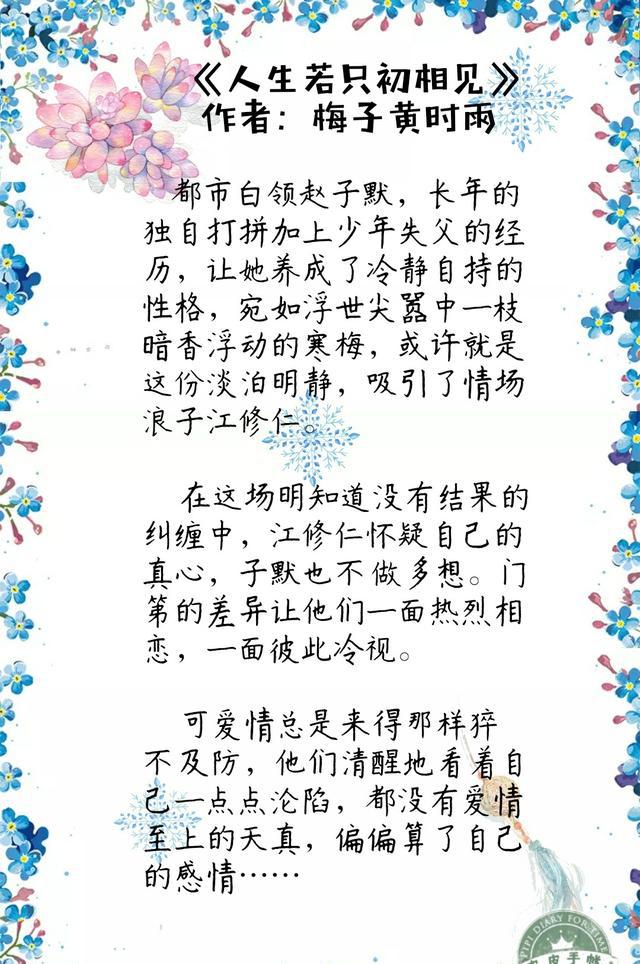 《人生若只初相见》
作者：梅子黄时雨
都市白领赵子默，长年的
独自打拼加上少年失父的经
历，让她养成了冷静自持的
性格，宛如浮世尖嚣中一枝
暗香浮动的寒梅，或许就是
这份淡泊明静，吸引了情场
浪子江修仁。
在这场明知道没有结果的
纠缠中，江修仁怀疑自己的
真心，子默也不做多想。门
第的差异让他们一面热烈相
恋，一面彼此冷视。
可爱情总是来得那样猝
不及防，他们清醒地看着自
己一点点沦陷，都没有爱情
至上的天真，偏偏算了自己
的感情……
PIPI DIARY FOR TIME